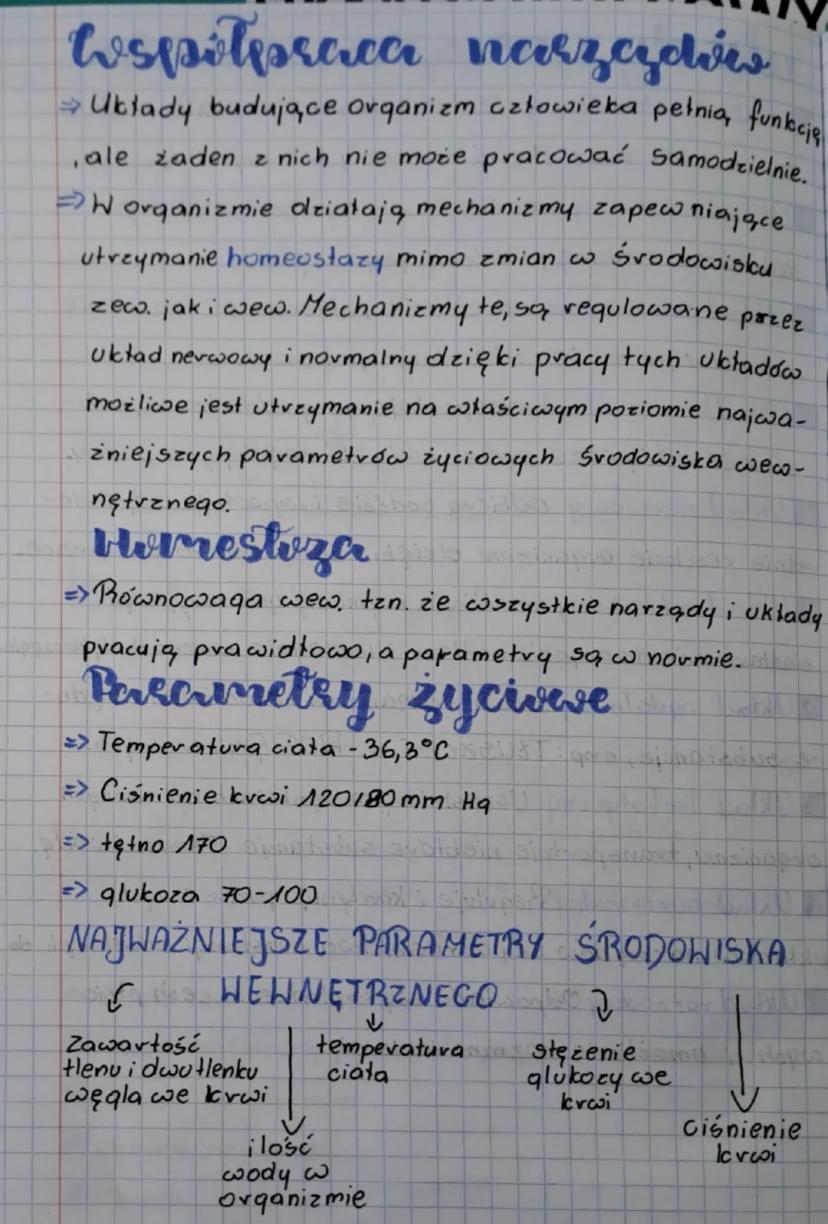 Współpraca narządów
⇒ Układy budujące organizm człowieka pełnią funkcję
, ale żaden z nich nie może pracować samodzielnie.
⇒ W organizmie działają mechanizmy zapewniające
utrzymanie homeostazy mimo zmian w środowisku
zew. jak i wew. Mechanizmy te, są regulowane przez
układ nerwowy i normalny dzięki pracy tych układów
możliwe jest utrzymanie na właściwym poziomie najwa-
żniejszych parametrów życiowych środowiska wew-
nętrznego.
Homestoza
⇒ Równowaga wew. tzn. że wszystkie narządy i układy
pracują prawidłowo, a parametry są w normie.
Parametry życiowe
⇒ Temperatura ciała - 36,3°C
⇒ Ciśnienie krwi 120/80 mm Hg
⇒ tętno 170
⇒ glukoza 70-100
NAJWAŻNIEJSZE PARAMETRY ŚRODOWISKA
WEWNĘTRZNEGO
Zawartość
tlenu i dwutlenku
węgla we krwi
ilość
wody w
organizmie
temperatura
ciała
stężenie
glukozy we
krwi
Ciśnienie
krwi